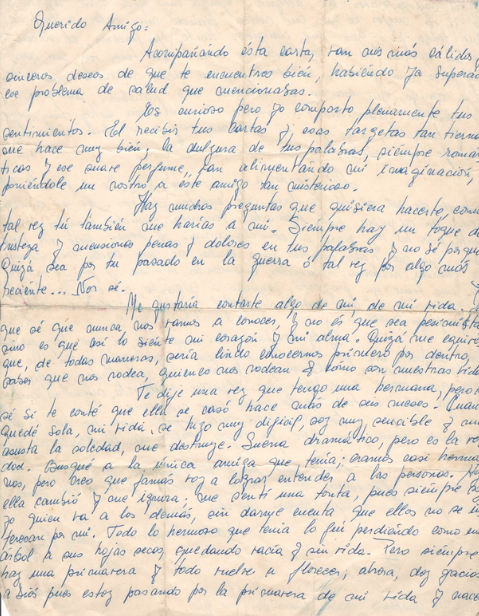 Querido Amigo:
Acompañando ésta carta, van mis más cálidos y
sinceros deseos de que te encuentres bién, habiendo ya superado
ese problema de salud que mencionabas.
Es curioso pero yo comparto plenamente tus
sentimientos. El recibir tus cartas y esas targetas tan tiernas
me hace muy bién; la dulzura de tus palabras, siempre román
ticas y ese suave perfume, van alimentando mi imaginación,
poniéndole un rostro a éste amigo tan misterioso.
Hay muchas preguntas que quisiera hacerte, como
tal vez tú también me harías a mí. Siempre hay un toque de
tristeza y mencionas penas y dolores en tus palabras y no sé porque
Quizá sea por tu pasado en la guerra ó tal vez por algo más
reciente... No sé.
Me gustaría contarte algo de mí, de mi vida.
que sé que nunca nos vamos a conocer, y no es que sea pesimista
sino es que así lo siente mi corazón y mi alma. Quizá me equivo
que, de todas maneras, sería lindo conocernos primero por dentro,
saber que nos rodea, quienes nos rodean y como son nuestras vidas
Te dije una vez que tengo una hermana, pero no
sé si te conté que ella se casó hace más de seis meses. Cuando
quedé sola, mi vida se hizo muy difícil, soy muy sencible y me
asusta la soledad, me destruye. Suena dramático, pero es la ver
dad. Busqué a la única amiga que tenía; eramos casi herma
nas, pero creo que jamás voy a lograr entender a las personas.
ella cambió y me ignora; me sentí una tonta, pues siempre
yo quien vá a los demás, sin darme cuenta que ellos no se in
teresan por mí. Todo lo hermoso que tenía lo fuí perdiendo como un
árbol a sus hojas secas, quedando vacía y sin vida. Pero siempre
hay una primavera y todo vuelve a florecer; ahora, doy gracias
a Diós pues estoy pasando por la primavera de mi vida y